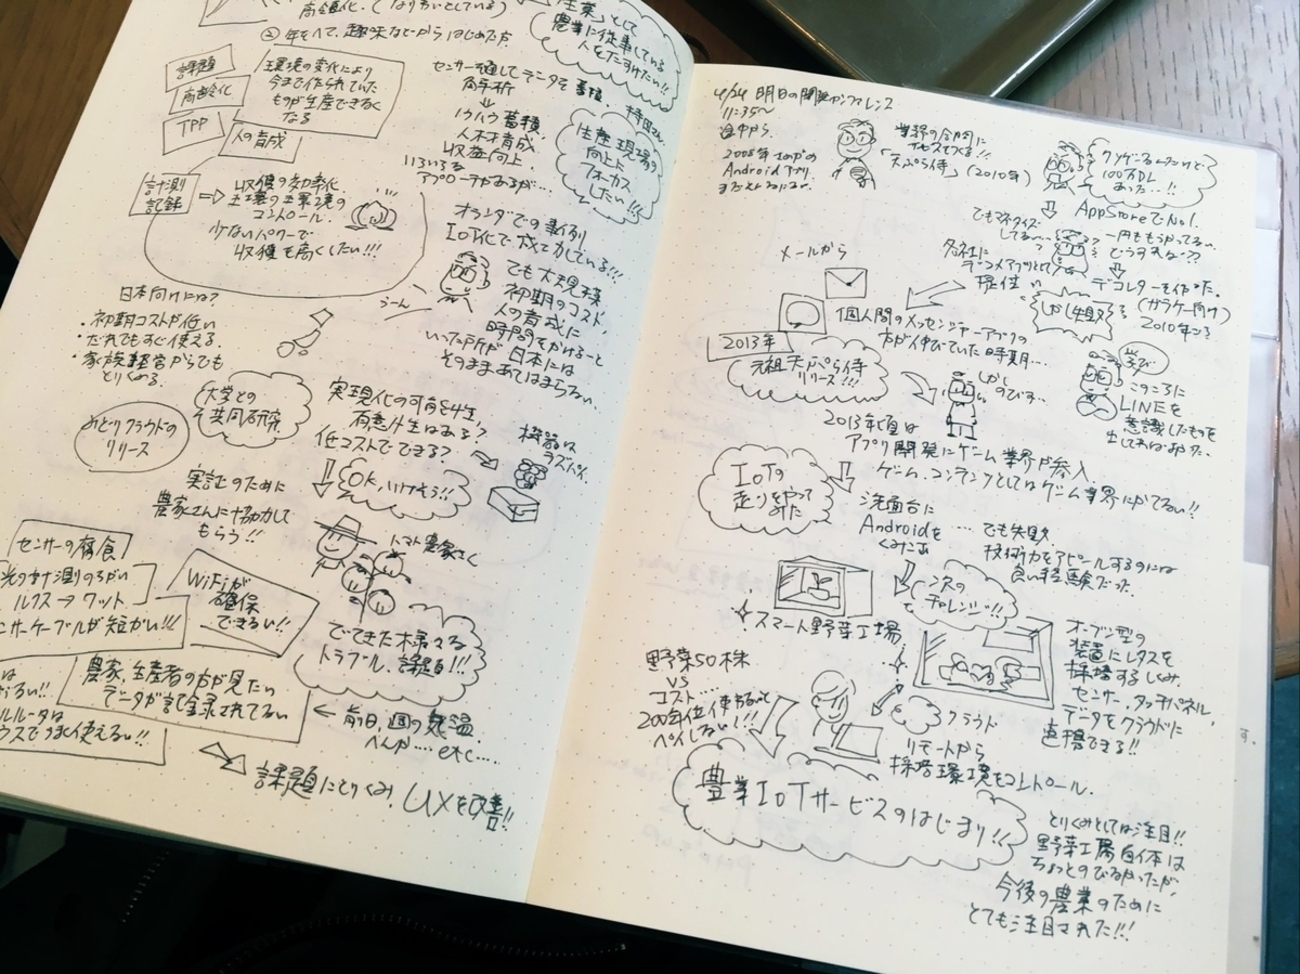 高齢化.(なりわいとしている)
② 年をへて、趣味などからはじめた方.
生業」として
農業に従事している
人をたすけたい!!
課題
高齢化
TPP
人の育成
環境の変化により
今まで作られていた
ものが生産できなく
なる
センサーを通してデータを蓄積、
解析
ノウハウ蓄積.
人材育成
収益向上.
いろいろな
アプローチがあるが…
生産現場の
向上に
フォーカス
したい!!!
計測
記録
収穫の効率化.
コントロール.
少ないパワーで
収穫を高くしたい!!!
オランダでの事例
IoT化で成功している!!!
でも大規模
初期のコスト,
人の育成に
時間をかけること
といった所が日本には
そのままあてはまらない.
うーん
日本向けには?
・初期コストが低い
・だれでもすぐ使える.
・家族経営からでも
とりくめる.
大学との
共同研究
みどりクラウドの
リリース
実現化の可能性
有意性はある?
低コストでできる?
機器は
ラズパイ
OK,いけそう!!
実証のために
農家さんに協力して
もらう!!
トマト農家さん
センサーの腐食
光の計測のちがい
ルクス→ワット
ンサーケーブルが短かい!!!
WiFiが
確保
できない!!
でてきた様々な
トラブル、課題!!!
農家、生産者の方が見たい
データが記録されてない
前日,週の気温
へんか…. etc….
ルルータは
ウスでうまく使えない!!
課題にとりくみ、UXを改善!!
4/24 明日の開発カンファレンス
11:35〜
途中から.
2008年
Androidアプリ
業界の合間に
サービスつくる!!
「天ぷら侍」(2010年)
クソゲーなのに
100万DL
あった…!!
AppStoreでNo1.
でもマネタイズ
してな…
一円ももうかってない.
どうすれば??
デコレターを作った.
(ガラケー向け)
2010年ごろ
各社に
デコメアプリとして
提供
しかし失敗
メールから
個人間のメッセンジャーアプリの
方が伸びていた時期…
2013年
元祖天ぷら侍
リリース!!!
しかし
のびず…
学び
このころに
LINEを
意識したものを
出してればよかった.
2013年頃は
アプリ開発にゲーム業界が参入
ゲーム.コンテンツとしてはゲーム業界にかてない!!
IoTの
走りをやって
みた
洗面台に
Androidを
くみこみ
… でも失敗
技術力をアピールするのには
良い経験だった.
次の
チャレンジ!!
スマート野菜工場
オープン型の
装置にレタスを
採培するしくみ.
センサー、タッチパネル,
データをクラウドに
連携できる!!
野菜50株
VS
コスト…
200年位使わないと
ペイしない!!!
クラウド
リモートから
採培環境をコントロール.
農業IoTサービスのはじまり!!
とりくみとしては注目!!
野菜工場自体は
今後の農業のために
とても注目された!!!